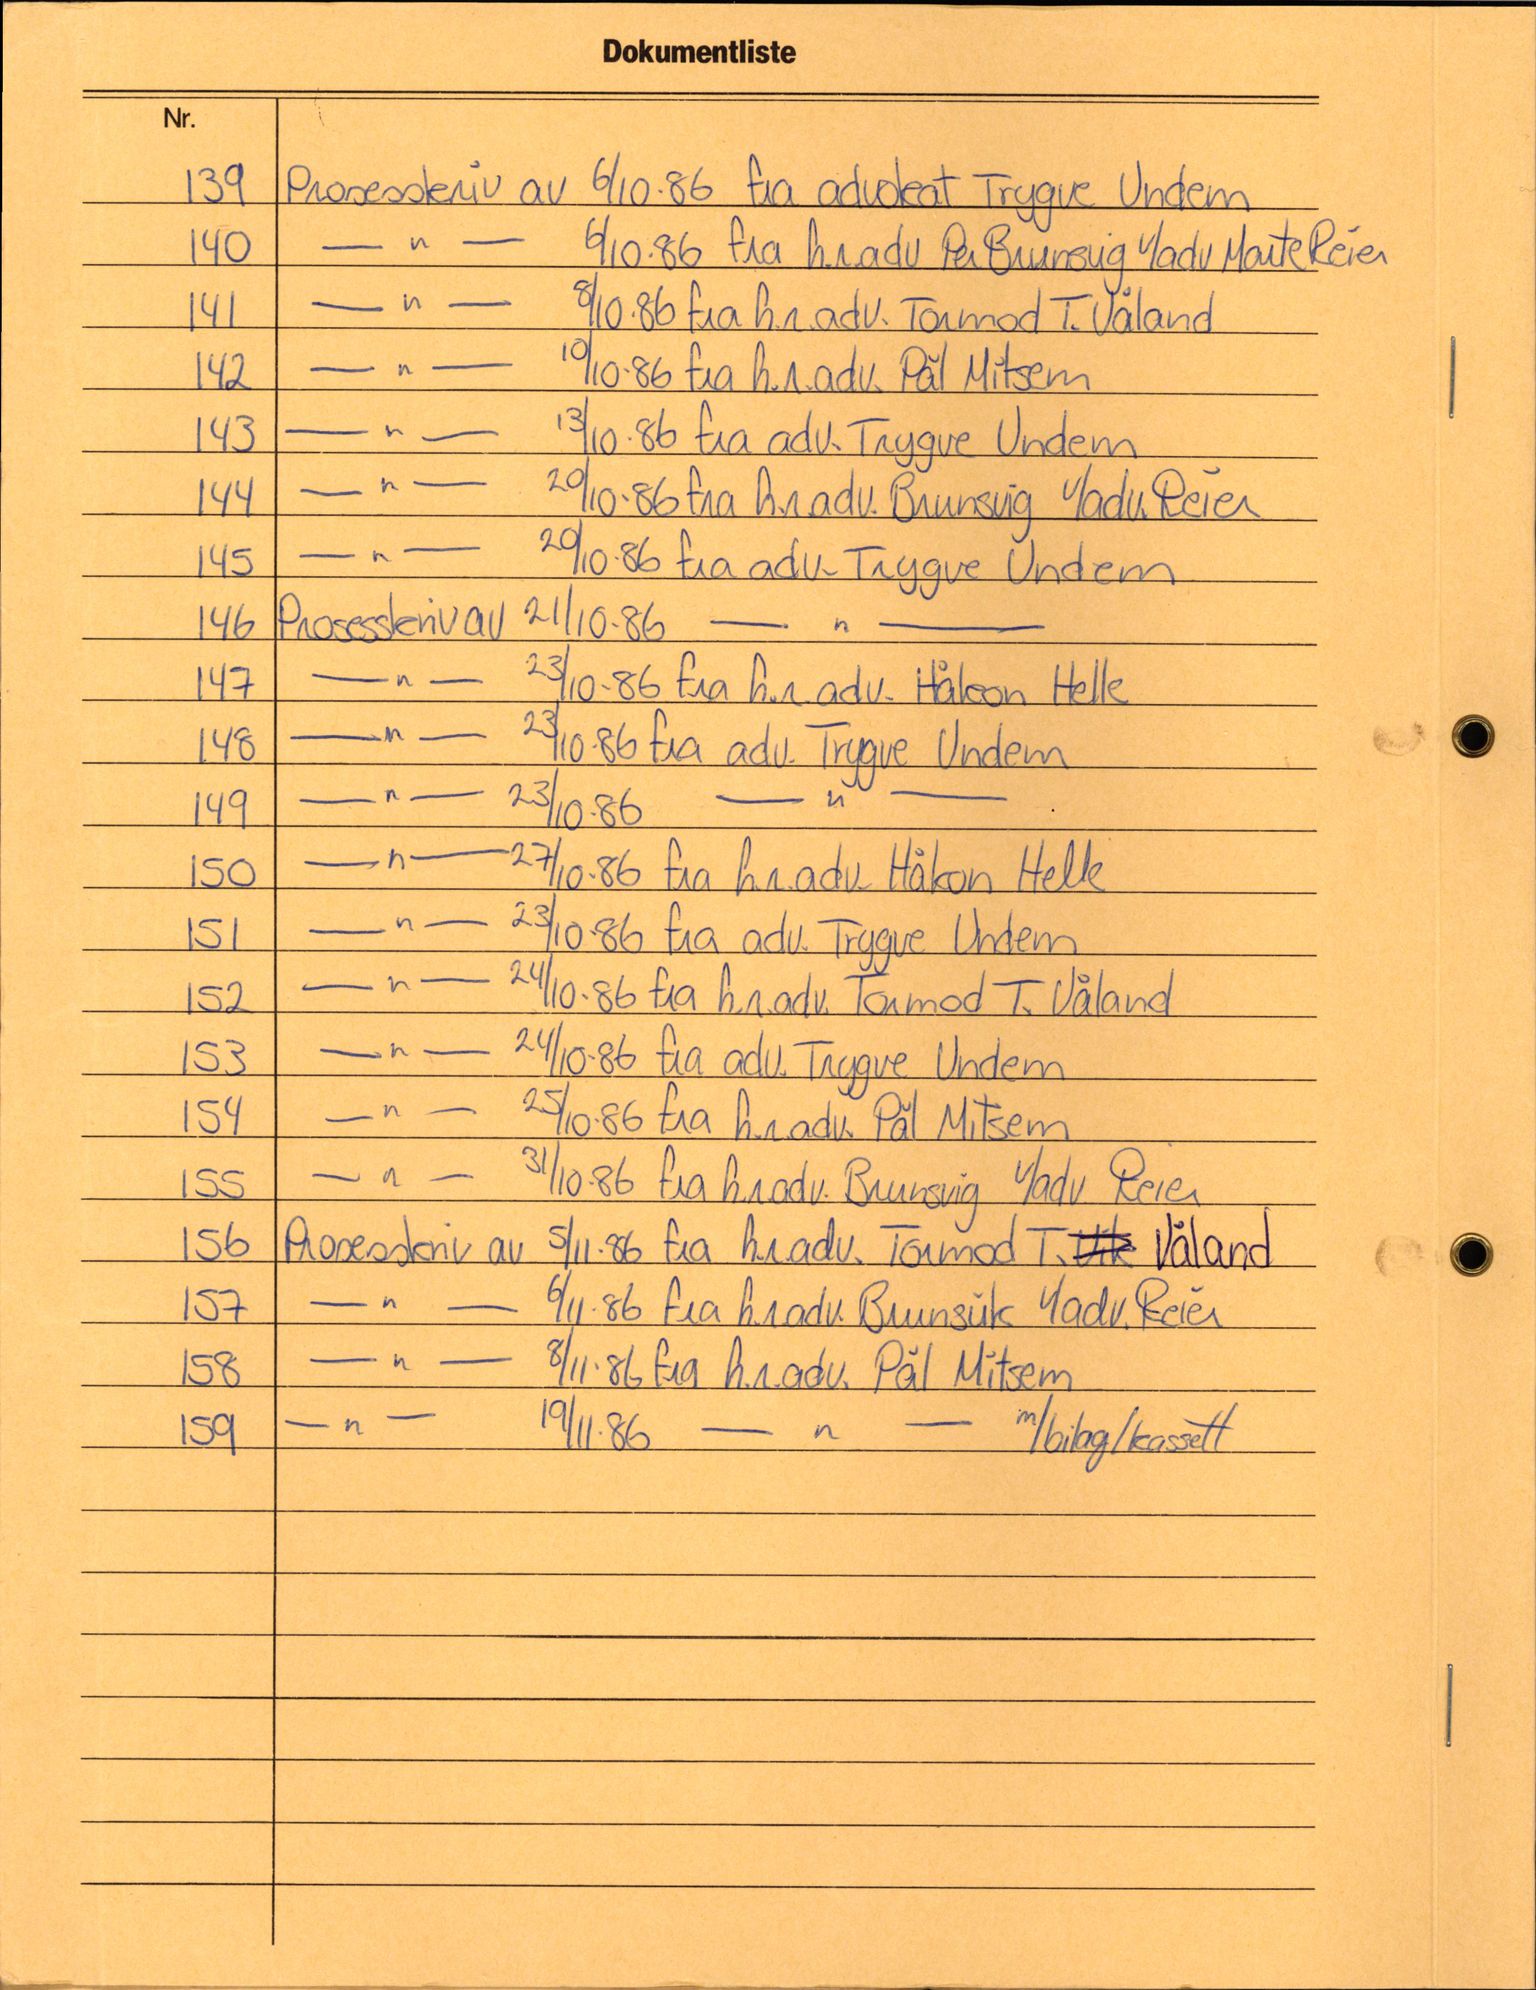 Dokumentliste
Nr.
139 Prosesskriv av 6/10.86 fra advokat Trygve Undem
140 — " — 6/10.86 fra h.r.adv Per Brunsvig v/adv Marte Reier
141 — " — 8/10.86 fra h.r.adv. Tormod T. Våland
142 — " — 10/10.86 fra h.r.adv. Pål Mitsem
143 — " — 13/10.86 fra adv. Trygve Undem
144 — " — 20/10.86 fra h.r.adv. Brunsvig v/adv. Reier
145 — " — 20/10.86 fra adv. Trygve Undem
146 Prosesskriv av 21/10.86 — " —
147 — " — 23/10.86 fra h.r.adv. Håkon Helle
148 — " — 23/10.86 fra adv. Trygve Undem
149 — " — 23/10.86 — " —
150 — " — 27/10.86 fra h.r.adv. Håkon Helle
151 — " — 23/10.86 fra adv. Trygve Undem
152 — " — 24/10.86 fra h.r.adv. Tormod T. Våland
153 — " — 24/10.86 fra adv. Trygve Undem
154 — " — 25/10.86 fra h.r.adv. Pål Mitsem
155 — " — 31/10.86 fra h.r.adv. Brunsvig v/adv Reier
156 Prosesskriv av 5/11.86 fra h.r.adv. Tormod T. Våland
157 — " — 6/11.86 fra h.r.adv. Brunsvik v/adv. Reier
158 — " — 8/11.86 fra h.r.adv. Pål Mitsem
159 — " — 19/11.86 — " — m/bilag/kassett